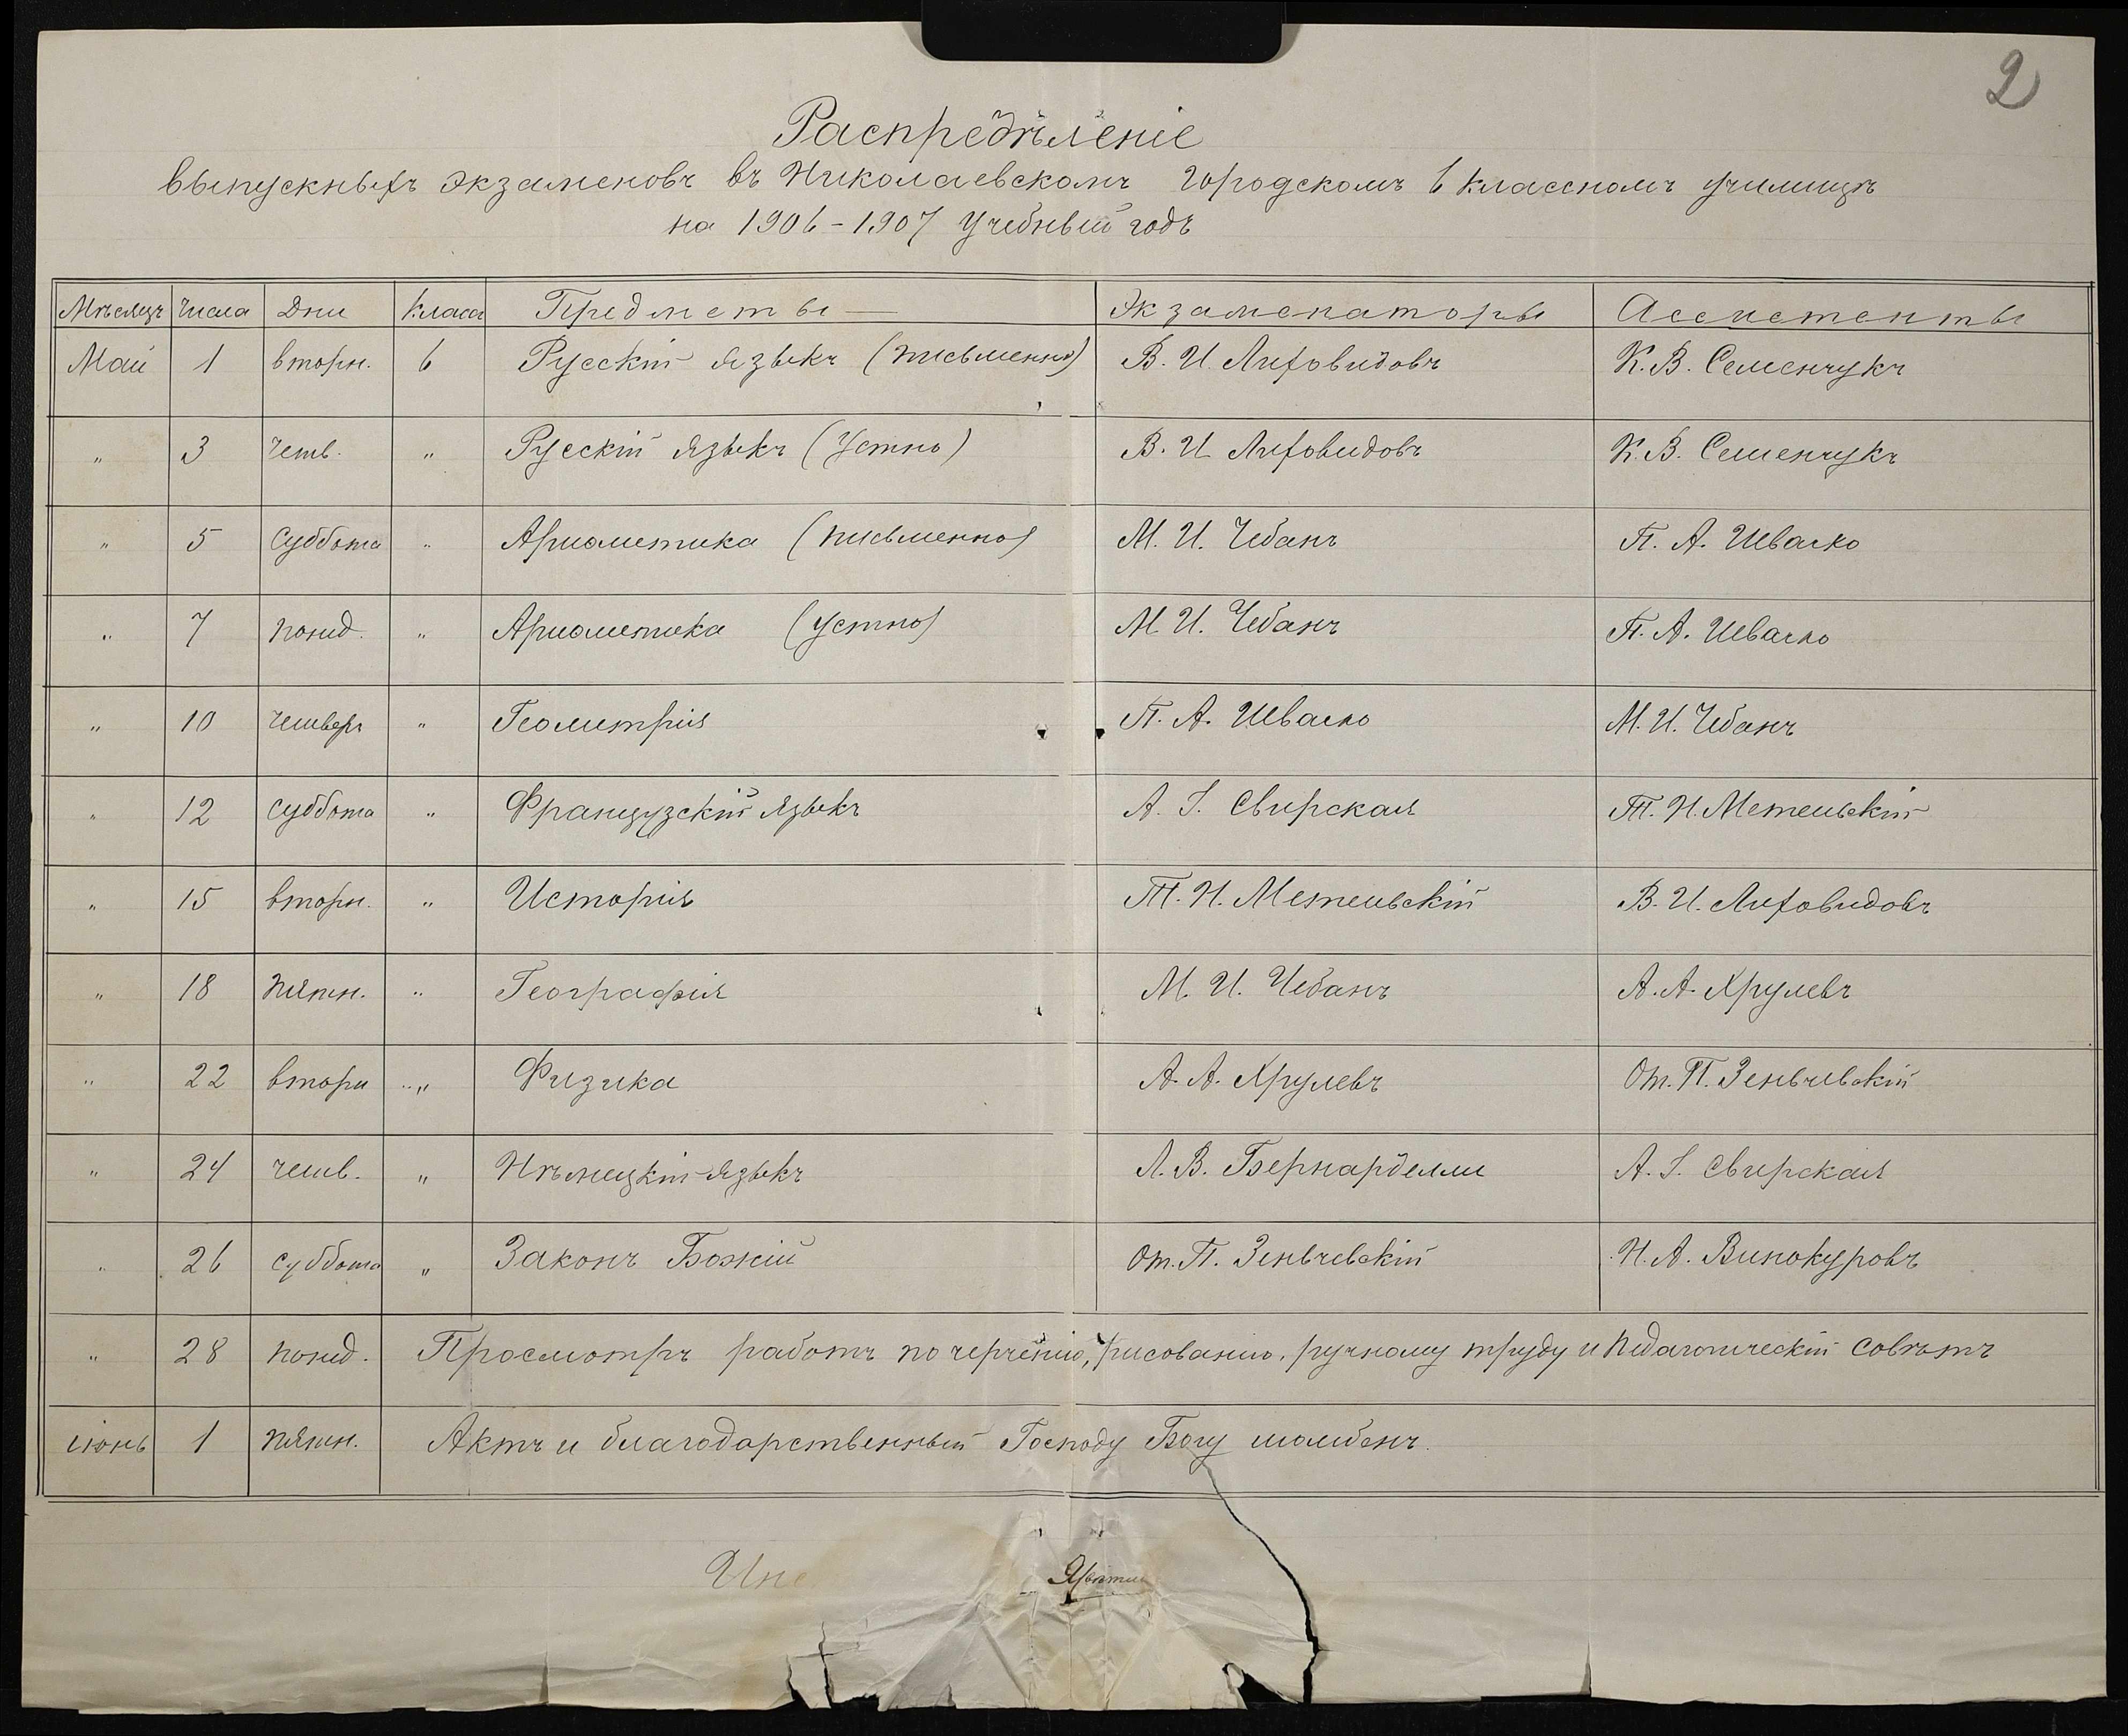 2
Распредѣленіе
выпускныхъ экзаменовъ въ Николаевскомъ Городскомъ 6 классномъ училищѣ
на 1906-1907 учебный годъ
Мѣсяцъ Числа Дни Класса Предметы — Экзаменаторы Ассистенты
Май 1 вторн. 6 Русскій языкъ (письменно) В. И. Лиховидовъ К. В. Семенчукъ
" 3 четв. " Русскій языкъ (Устно) В. И. Лиховидовъ К. В. Семенчукъ
" 5 суббота " Ариѳметика (письменно) М. И. Чебанъ П. А. Ивасько
" 7 понед. " Ариѳметика (устно) М. И. Чебанъ П. А. Ивасько
" 10 четверг " Геометрія П. А. Ивасько М. И. Чебанъ
" 12 суббота " Французскій языкъ А. I. Свирская Т. Н. Метельскій
" 15 вторн. " Исторія Т. Н. Метельскій В. И. Лиховидовъ
" 18 пятн. " Географія М. И. Чебанъ А. А. Хрулевъ
" 22 вторн " Физика А. А. Хрулевъ От. П. Зеньчевскій
" 24 четв. " Нѣмецкій языкъ Л. В. Бернарделли А. I. Свирская
" 26 суббота " Законъ Божій От. П. Зеньчевскій Н. А. Винокуровъ
" 28 понед. Просмотръ работъ по черченію, рисованію, ручному труду и педагогическій совѣтъ
іюнь 1 пятн. Актъ и благодарственный Господу Богу молебенъ.
Инс